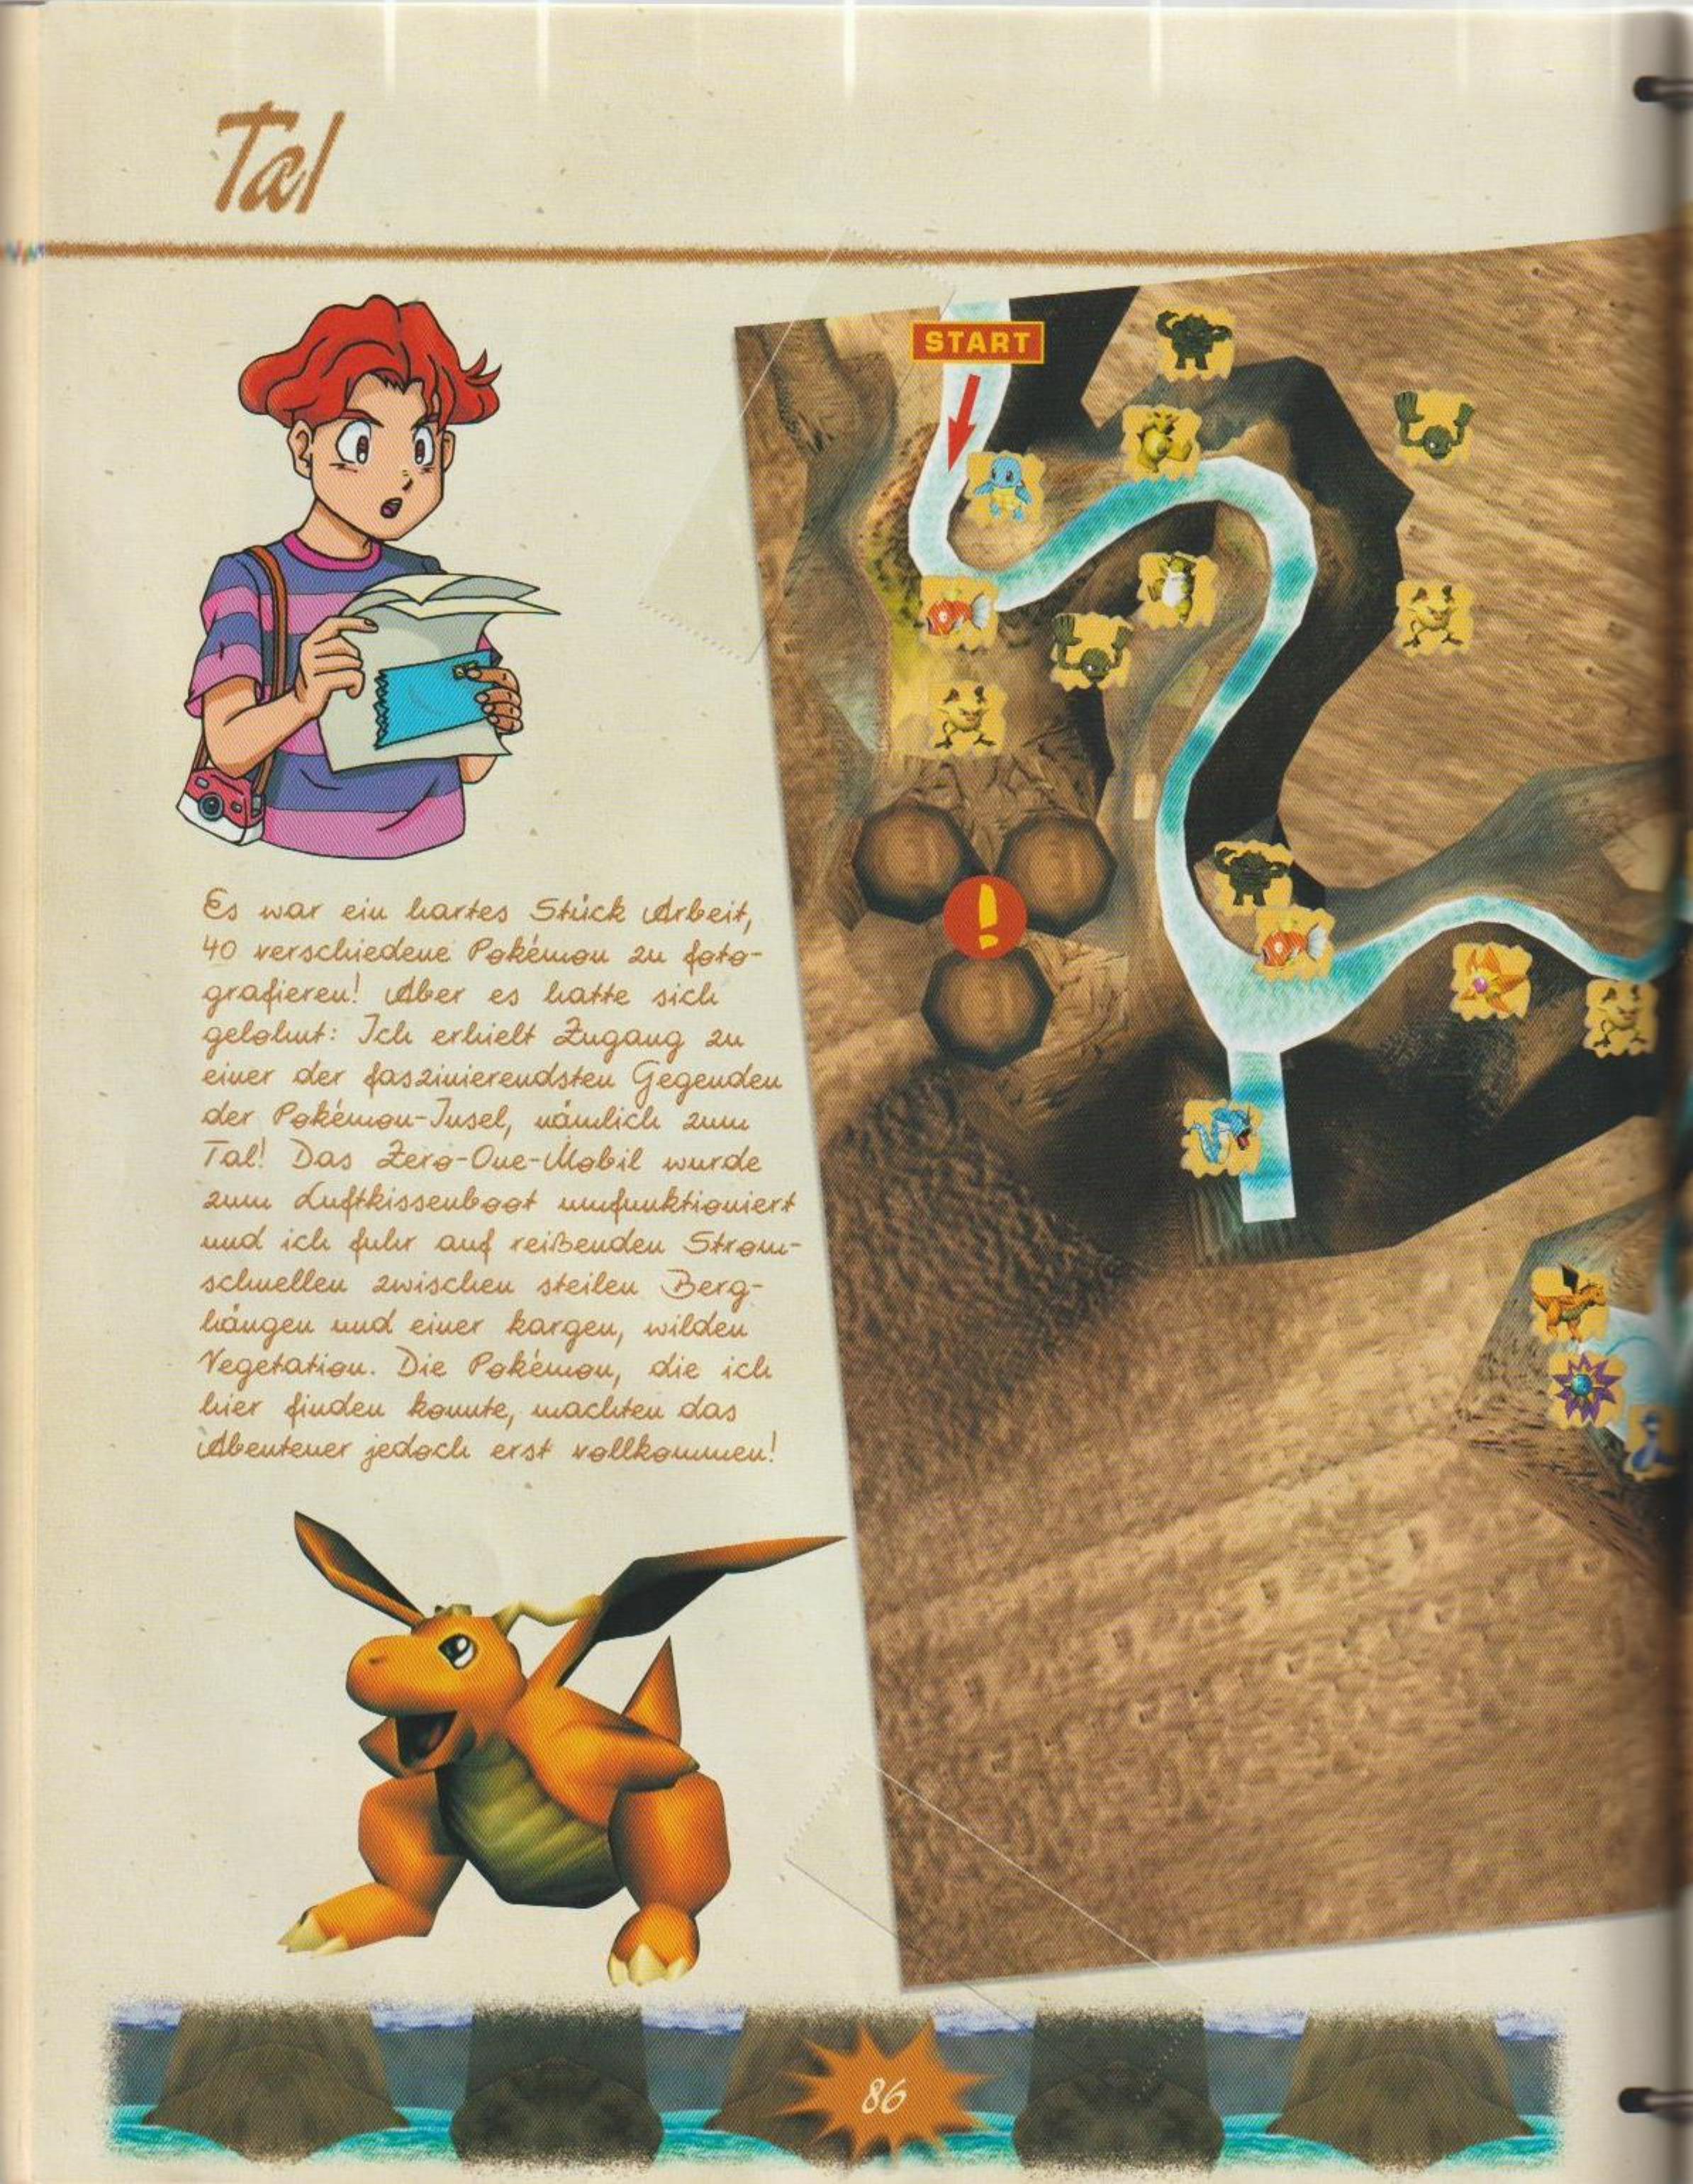 Tal
START
Es war ein hartes Stück Arbeit,
40 verschiedene Pokémon zu foto-
grafieren! Aber es hatte sich
gelohnt: Ich erhielt Zugang zu
einer der faszinierendsten Gegenden
der Pokémon-Insel, nämlich zum
Tal! Das Zero-One-Mobil wurde
zum Luftkissenboot umfunktioniert
und ich fuhr auf reißenden Strom-
schnellen zwischen steilen Berg-
hängen und einer kargen, wilden
Vegetation. Die Pokémon, die ich
hier finden konnte, machten das
Abenteuer jedoch erst vollkommen!
!
86